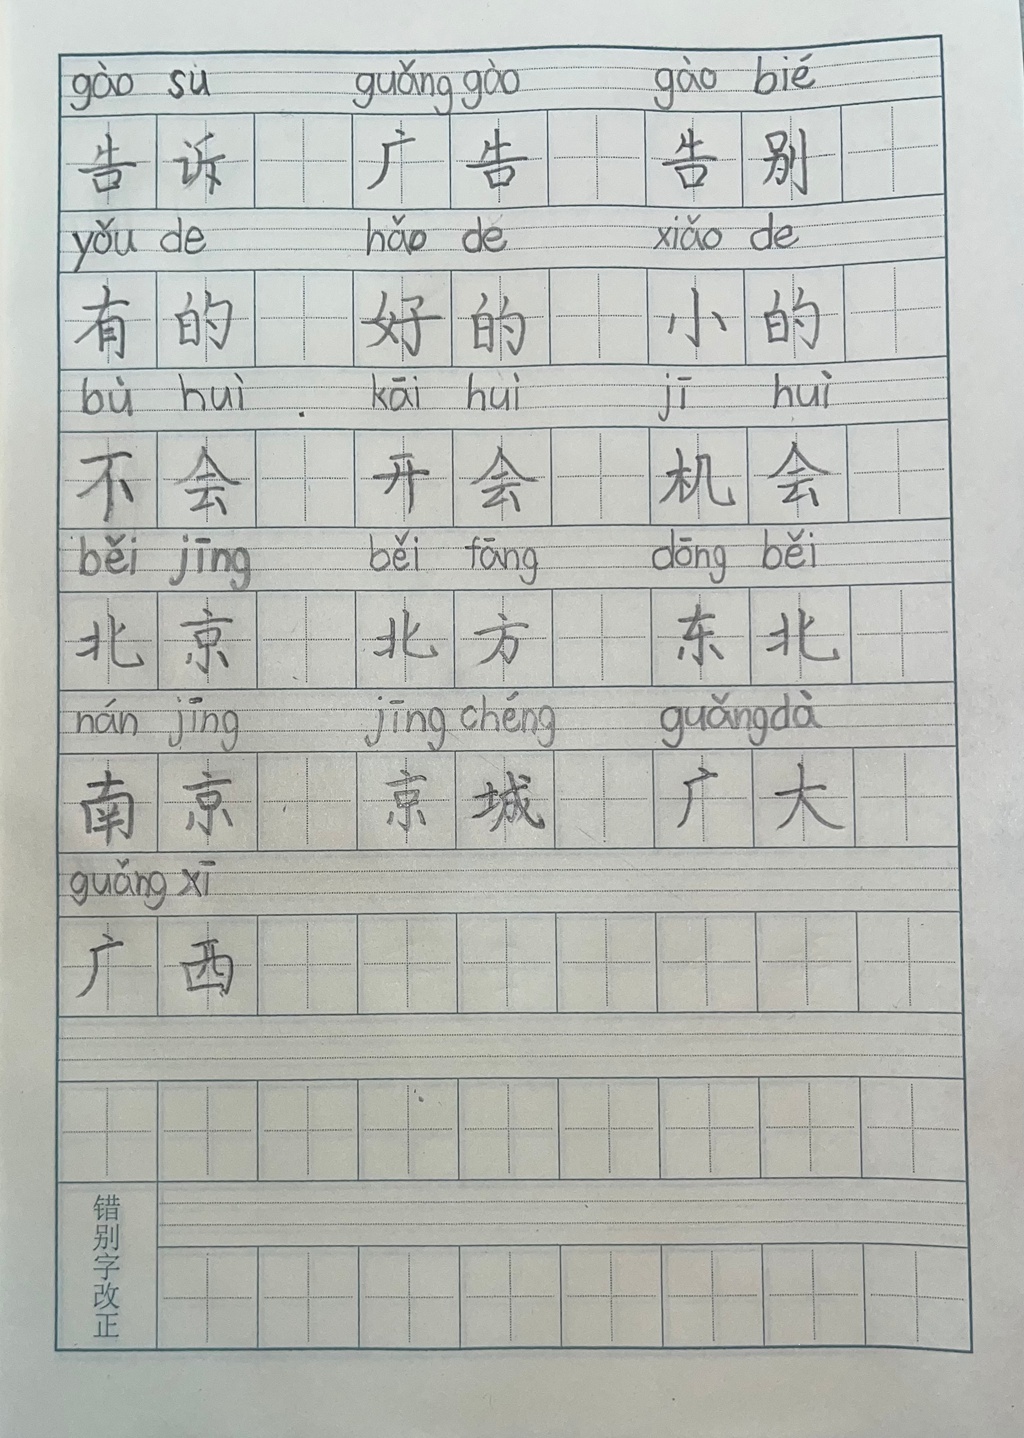 gào sù guǎng gào gào bié
告诉 广告 告别
yǒu de hǎo de xiǎo de
有的 好的 小的
bù huì kāi huì jī huì
不会 开会 机会
běi jīng běi fāng dōng běi
北京 北方 东北
nán jīng jīng chéng guǎng dà
南京 京城 广大
guǎng xī
广西
错别字改正